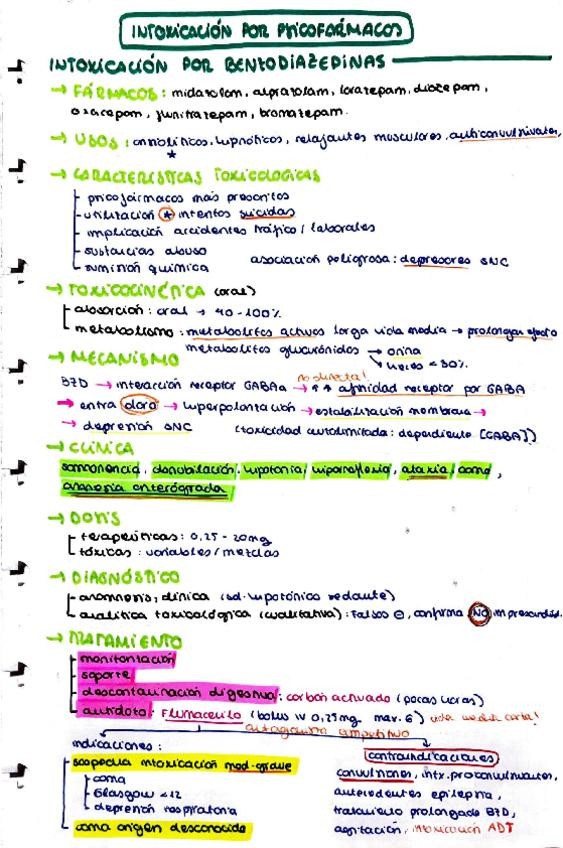 INTOXICACIÓN POR PSICOFÁRMACOS
INTOXICACIÓN POR BENZODIAZEPINAS
→ FÁRMACOS: midazolam, alprazolam, lorazepam, diazepam,
oxazepam, flunitrazepam, bromazepam.
→ USOS: ansiolíticos, hipnóticos, relajantes musculares, anticonvulsivantes,
★
→ CARACTERÍSTICAS TOXICOLÓGICAS
psicofármacos más prescritos
utilización ★ intentos suicidas
implicación accidentes tráfico / laborales
sustancias abuso
asociación peligrosa: depresores SNC
sumisión química
→ TOXICOCINÉTICA (oral)
absorción: oral → 40-100%
metabolismo: metabolitos activos larga vida media → prolongan efecto
metabolitos glucurónidos → orina
heces < 30%
→ MECANISMO
no directa!
BZD → interacción receptor GABAa → ↑↑ afinidad receptor por GABA
→ entra cloro → hiperpolarización → estabilización membrana →
→ depresión SNC (toxicidad autolimitada: dependiente [GABA])
→ CLÍNICA
somnolencia, obnubilación, hipotonía, hiporreflexia, ataxia, coma,
amnesia anterógrada
→ DOSIS
terapéuticas: 0,25 - 20mg
tóxicas: variables / mezclas
→ DIAGNÓSTICO
anamnesis, clínica (sd. hipotónico sedante)
analítica toxicológica (cualitativa): Falsos ⊖, confirma NO imprescindib.
→ TRATAMIENTO
monitorización
soporte
descontaminación digestiva: carbón activado (pocas horas)
antídoto: FLUMACENILO (bolus IV 0,25mg max. 6) vida media corta!
antagonismo competitivo
indicaciones:
contraindicaciones
sospecha intoxicación mod-grave
convulsiones, intx. proconvulsivantes,
coma
antecedentes epilepsia,
Glasgow < 12
tratamiento prolongado BZD,
depresión respiratoria
agitación, intoxicación ADT
coma origen desconocido